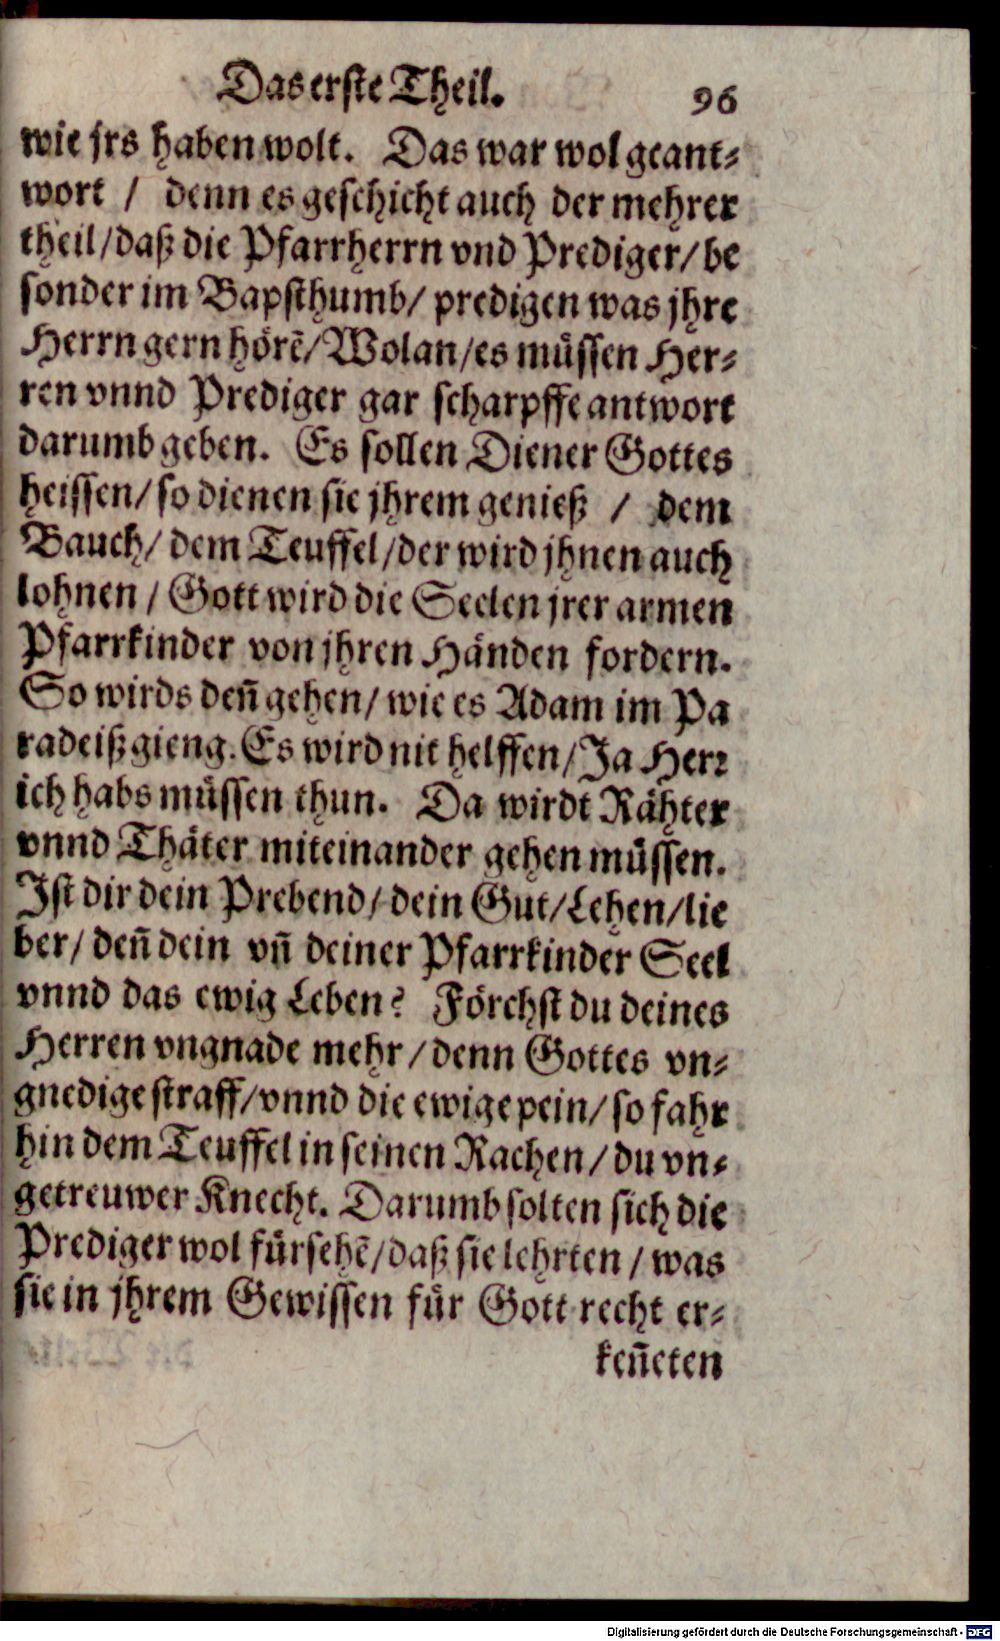 Das erste Theil. 96
wie jrs haben wolt. Das war wol geant⸗
wort / denn es geschicht auch der mehrer
theil/daß die Pfarrherrn vnd Prediger/be
sonder im Bapsthumb/ predigen was jhre
Herrn gern hörẽ/Wolan/es müssen Her⸗
ren vnnd Prediger gar scharpffe antwort
darumb geben. Es sollen Diener Gottes
heissen/so dienen sie jhrem genieß / dem
Bauch/dem Teuffel/der wird jhnen auch
lohnen/Gott wird die Seelen jrer armen
Pfarrkinder von jhren Händen fordern.
So wirds deñ gehen/wie es Adam im Pa
radeiß gieng. Es wird nit helffen/Ja Herr
ich habs müssen thun. Da wirdt Rähter
vnnd Thäter miteinander gehen müssen.
Ist dir dein Prebend/dein Gut/Lehen/lie
ber/deñ dein vñ deiner Pfarrkinder Seel
vnnd das ewig Leben? Förchst du deines
Herren vngnade mehr/denn Gottes vn⸗
gnedige straff/vnnd die ewige pein/so fahr
hin dem Teuffel in seinen Rachen/du vn⸗
getreuwer Knecht. Darumb solten sich die
Prediger wol fürsehẽ/daß sie lehrten/was
sie in jhrem Gewissen für Gott recht er⸗
keñeten
Digitalisierung gefördert durch die Deutsche Forschungsgemeinschaft - DFG